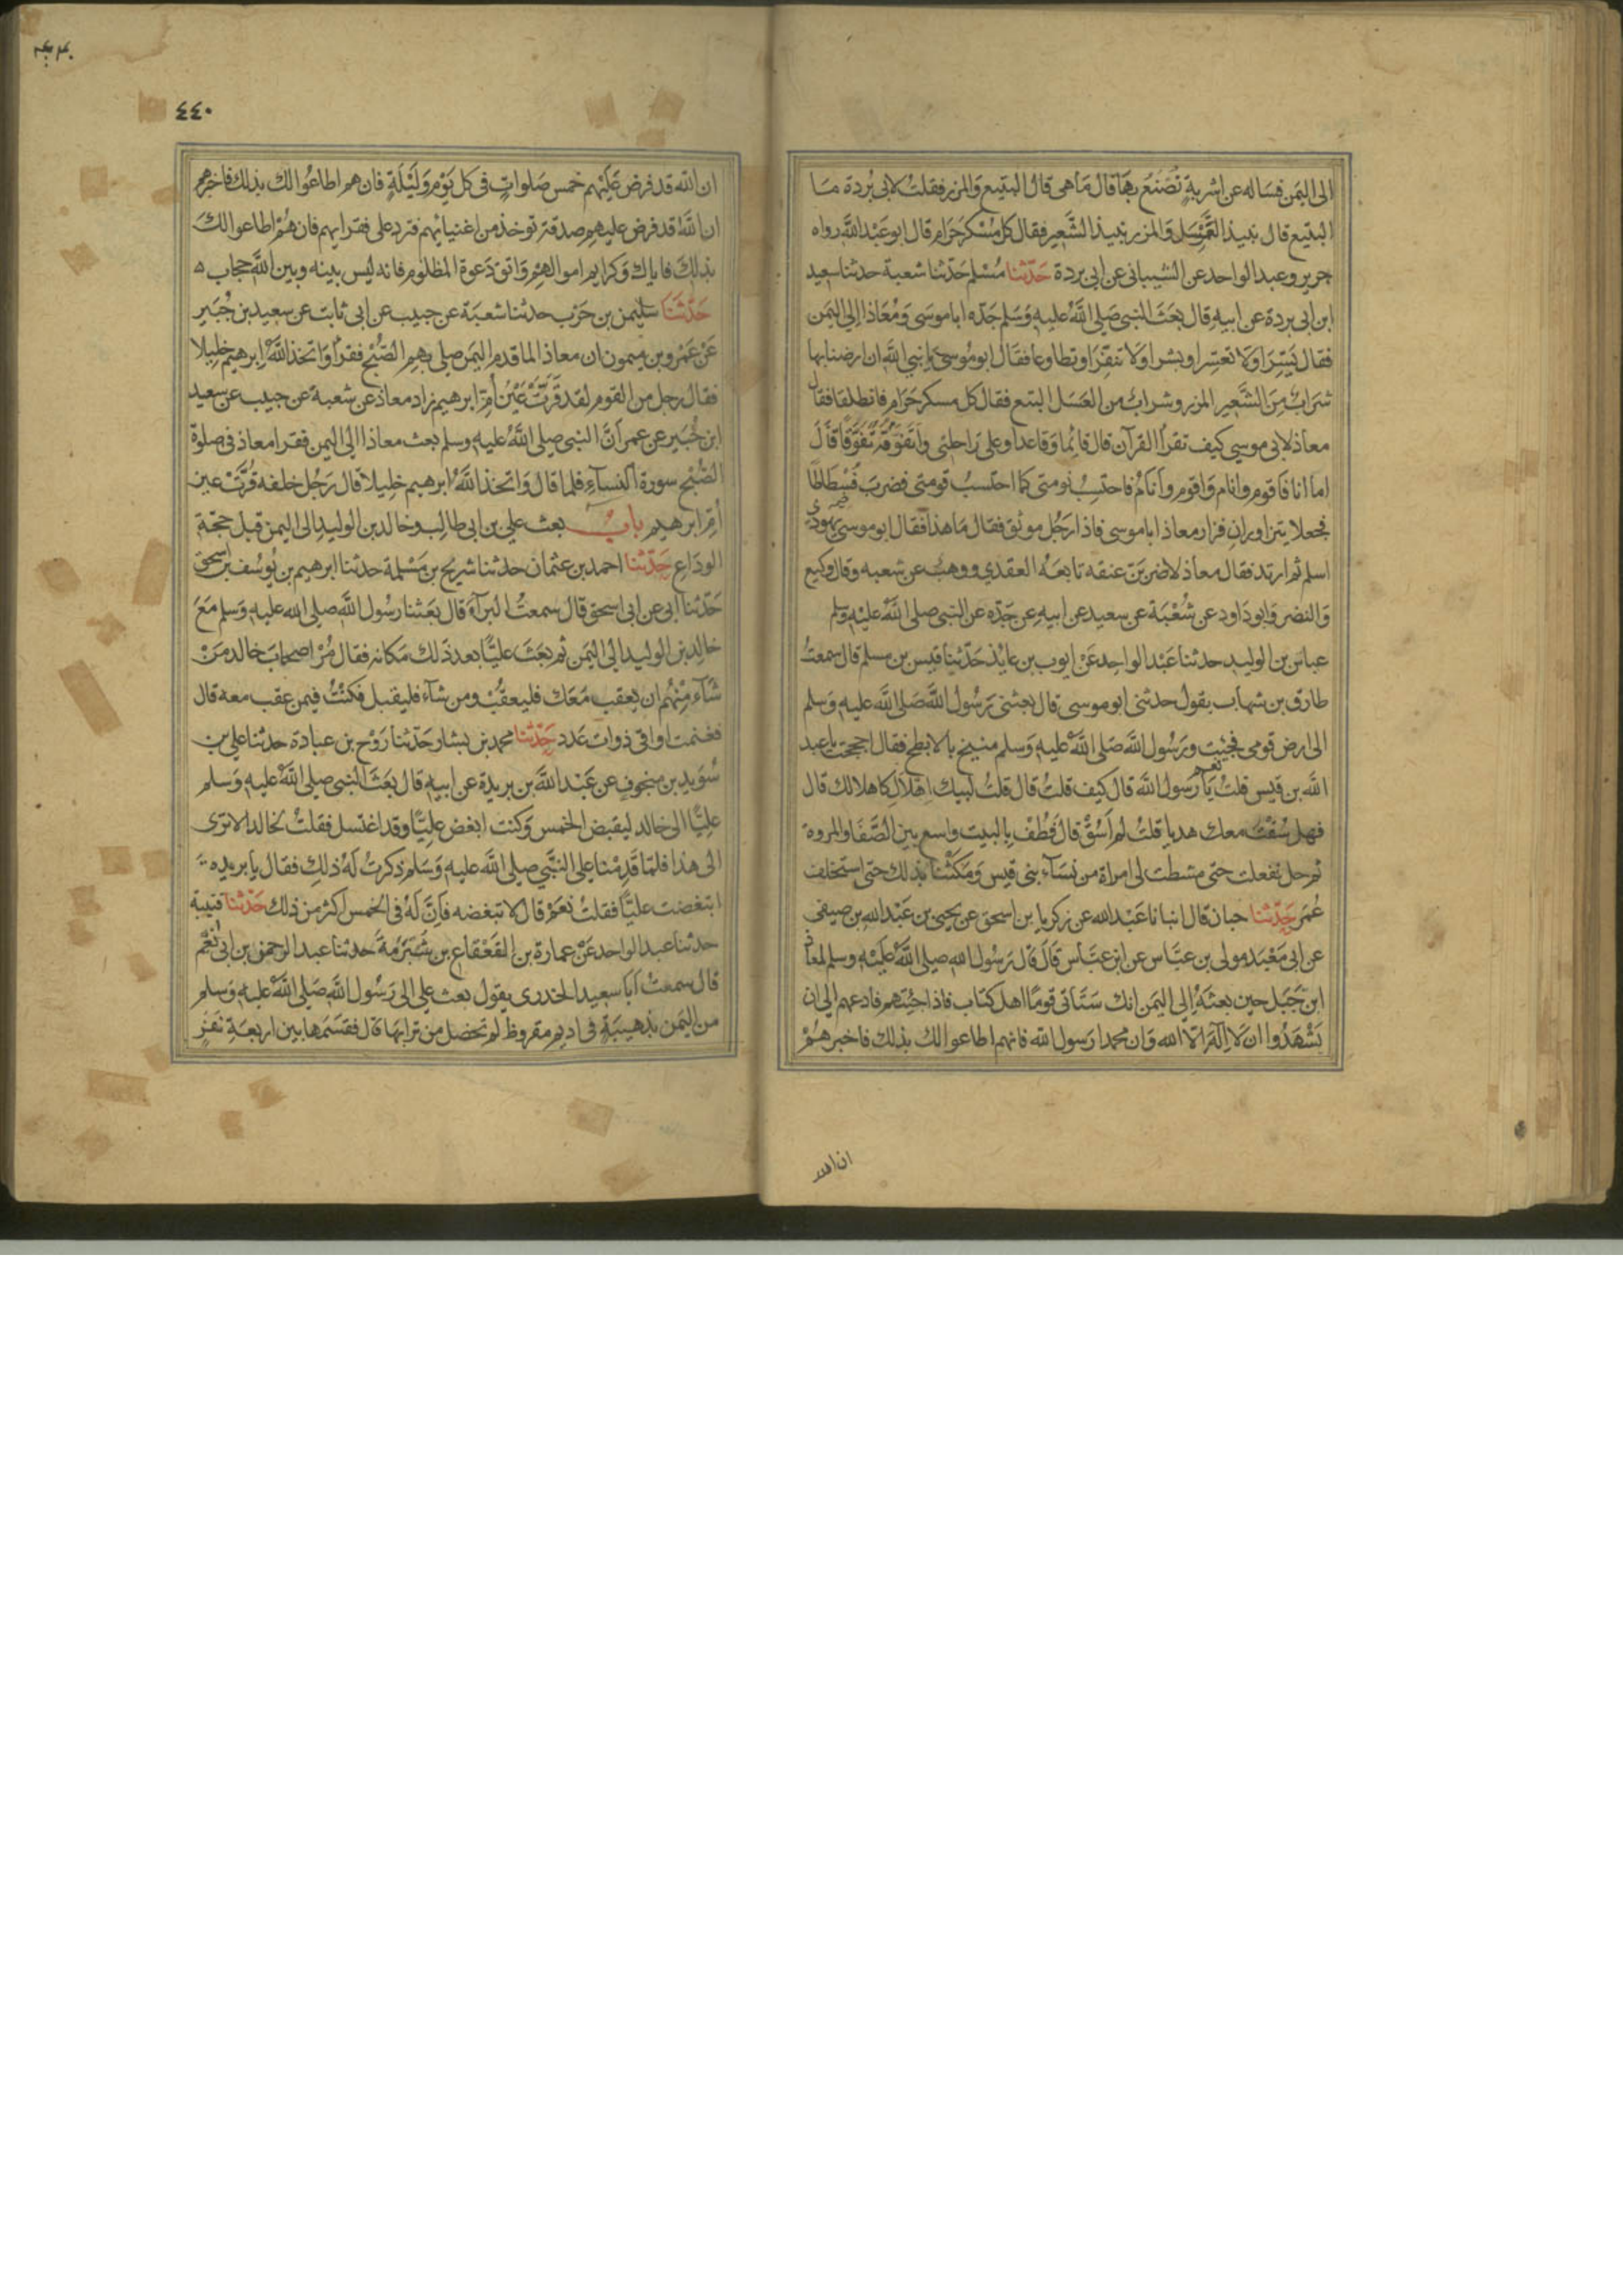 الى اليمن فساله عن اشربة تصنع بها قال ما هى قال البتع والمزر فقلت لابى بردة ما
البتع قال نبيذ العسل والمزر نبيذ الشعير فقال كل مسكر حرام قال ابو عبد الله رواه
جرير وعبد الواحد عن الشيبانى عن ابى بردة حدثنا مسلم حدثنا شعبة حدثنا سعيد
ابن ابى بردة عن ابيه قال بعث النبى صلى الله عليه وسلم جده ابا موسى ومعاذا الى اليمن
فقال يسرا ولا تعسرا وبشرا ولا تنفرا وتطاوعا فقال ابو موسى يا نبى الله ان ارضنا بها
شراب من الشعير المزر وشراب من العسل البتع فقال كل مسكر حرام فانطلقا فقال
معاذ لابى موسى كيف تقرأ القرآن قال قائما وقاعدا وعلى راحلتى واتفوقه تفوقا قال
اما انا فاقوم وانام واقوم وانام فاحتسب نومتى كما احتسب قومتى فضرب فسطاطا
فجعلا يتزاوران فزار معاذ ابا موسى فاذا رجل موثق فقال ما هذا فقال ابو موسى يهودى
اسلم ثم ارتد فقال معاذ لاضربن عنقه تابعه العقدي ووهب عن شعبه وقال وكيع
والنضر وابو داود عن شعبة عن سعيد عن ابيه عن جده عن النبى صلى الله عليه وسلم
عباس بن الوليد حدثنا عبد الواحد عن ايوب بن عايذ حدثنا قيس بن مسلم قال سمعت
طارق بن شهاب يقول حدثنى ابو موسى قال بعثنى رسول الله صلى الله عليه وسلم
الى ارض قومى فجئت ورسول الله صلى الله عليه وسلم منيخ بالابطح فقال احججت يا عبد
الله بن قيس قلت نعم يا رسول الله قال كيف قلت قال قلت لبيك اهلال كاهلالك قال
فهل سقت معك هديا قلت لم اسق قال فطف بالبيت واسع بين الصفا والمروة
ثم حل ففعلت حتى مشطت لى امراة من نسآء بنى قيس ومكثنا بذلك حتى استخلف
عمر حدثنا حبان قال انبانا عبد الله عن زكريا بن اسحق عن يحيى بن عبد الله بن صيفى
عن ابى معبد مولى بن عباس عن ابن عباس قال قال رسول الله صلى الله عليه وسلم لمعاذ
ابن جبل حين بعثه الى اليمن انك ستاتى قوما اهل كتاب فاذا جئتهم فادعهم الى ان
يشهدوا ان لا اله الا الله وان محمدا رسول الله فانهم اطاعوا لك بذلك فاخبرهم
ان الله
٤٤٠
ان الله قد فرض عليهم خمس صلوات فى كل يوم وليلة فان هم اطاعوا لك بذلك فاخبرهم
ان الله قد فرض عليهم صدقة توخذ من اغنيائهم فترد على فقرايهم فان هم اطاعوا لك
بذلك فاياك وكرايم اموالهم واتق دعوة المظلوم فانه ليس بينه وبين الله حجاب ه
حدثنا سليمن بن حرب حدثنا شعبة عن حبيب عن ابى ثابت عن سعيد بن جبير
عن عمرو بن ميمون ان معاذا لما قدم اليمن صلى بهم الصبح فقرأ واتخذ الله ابرهيم خليلا
فقال رجل من القوم لقد قرت عين ام ابرهيم زاد معاذ عن شعبة عن حبيب عن سعيد
ابن جبير عن عمر ان النبى صلى الله عليه وسلم بعث معاذا الى اليمن فقرا معاذ فى صلوة
الصبح سورة النسآء فلما قال واتخذ الله ابرهيم خليلا قال رجل خلفه قرت عين
ام ابرهيم باب بعث على بن ابى طالب وخالد بن الوليد الى اليمن قبل حجة
الوداع حدثنا احمد بن عثمان حدثنا شريح بن مسلمة حدثنا ابرهيم بن يوسف بن اسحق
حدثنا ابى عن ابى اسحق قال سمعت البرآء قال بعثنا رسول الله صلى الله عليه وسلم مع
خالد بن الوليد الى اليمن ثم بعث عليا بعد ذلك مكانه فقال مر اصحاب خالد من
شآء منهم ان يعقب معك فليعقب ومن شآء فليقبل فكنت فيمن عقب معه قال
فغنمت اواقى ذوات عدد حدثنا محمد بن بشار حدثنا روح بن عبادة حدثنا على بن
سويد بن منجوف عن عبد الله بن بريدة عن ابيه قال بعث النبى صلى الله عليه وسلم
عليا الى خالد ليقبض الخمس وكنت ابغض عليا وقد اغتسل فقلت لخالد الا ترى
الى هذا فلما قدمنا على النبى صلى الله عليه وسلم ذكرت له ذلك فقال يا بريده
ابتغضت عليا فقلت نعم قال لا تبغضه فان له فى الخمس اكثر من ذلك حدثنا قتيبة
حدثنا عبد الواحد عن عمارة بن القعقاع بن شبرمة حدثنا عبد الرحمن بن ابى نعم
قال سمعت ابا سعيد الخدرى يقول بعث على الى رسول الله صلى الله عليه وسلم
من اليمن بذهيبة فى اديم مقروظ لم تحصل من ترابها قال فقسمها بين اربعة نفر